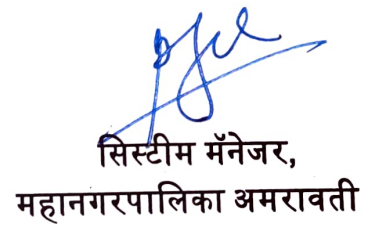 सिस्टीम मॅनेजर,
महानगरपालिका अमरावती